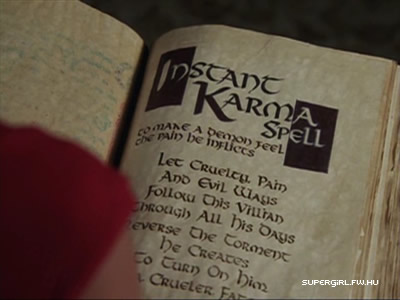 Instant
Karma
Spell
to make a demon feel
the pain he inflicts
Let Cruelty, Pain
And Evil Ways
Follow This Villian
Through All His Days
Reverse The Torment
He Creates
To Turn On Him
A Crueler Fate
SUPERGIRL.FW.HU